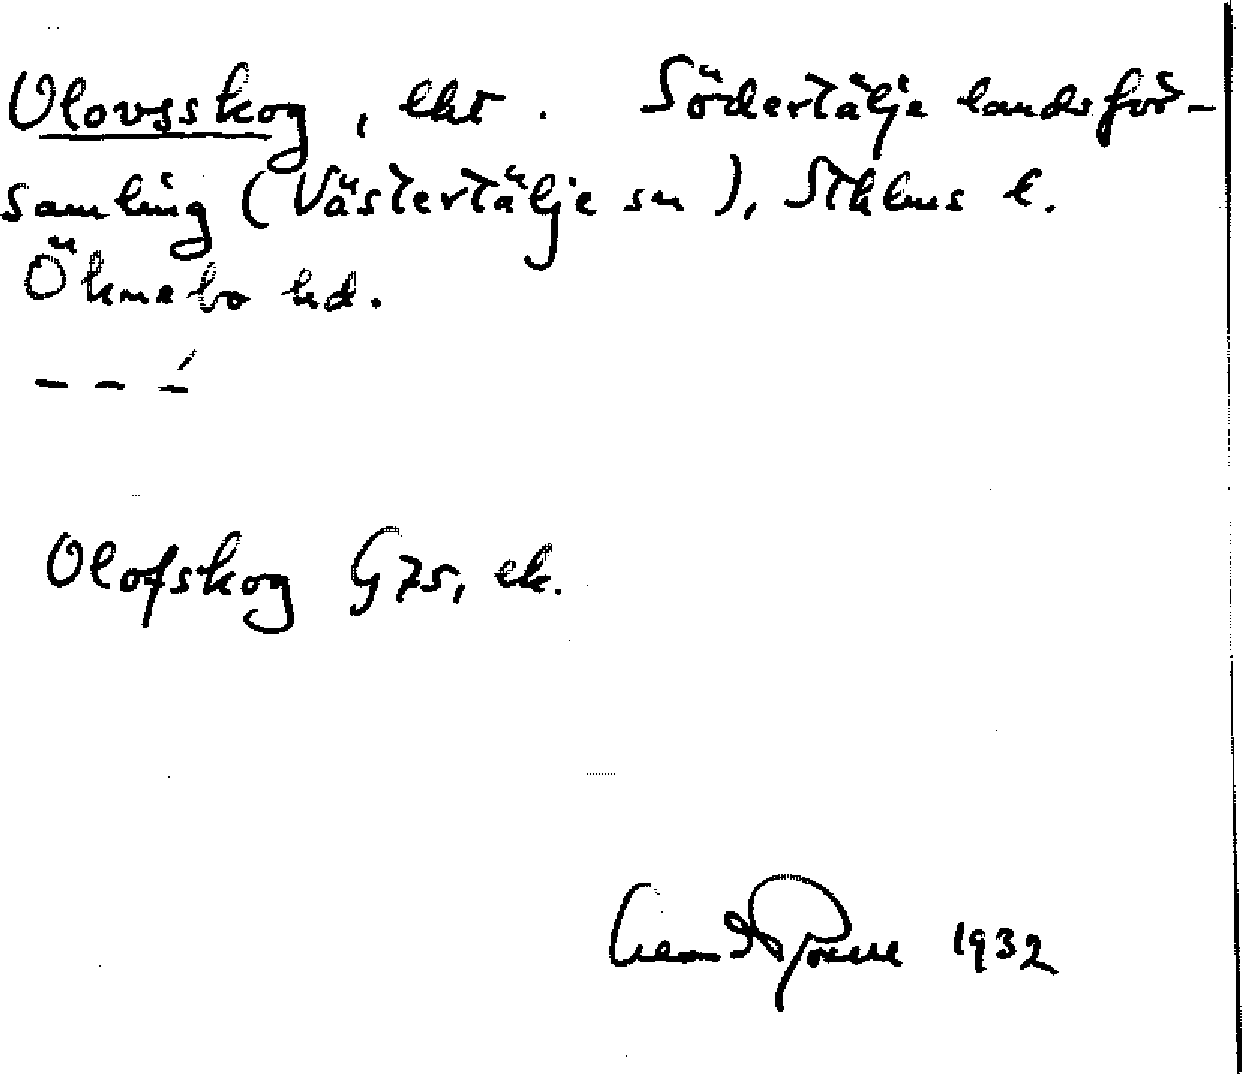 Olovsskog, lht. Södertälje landsför-
samling (Västertälje sn), Sthlms l.
Öknebo hd.
– – –́
Olofskog G 75, ek.
1932